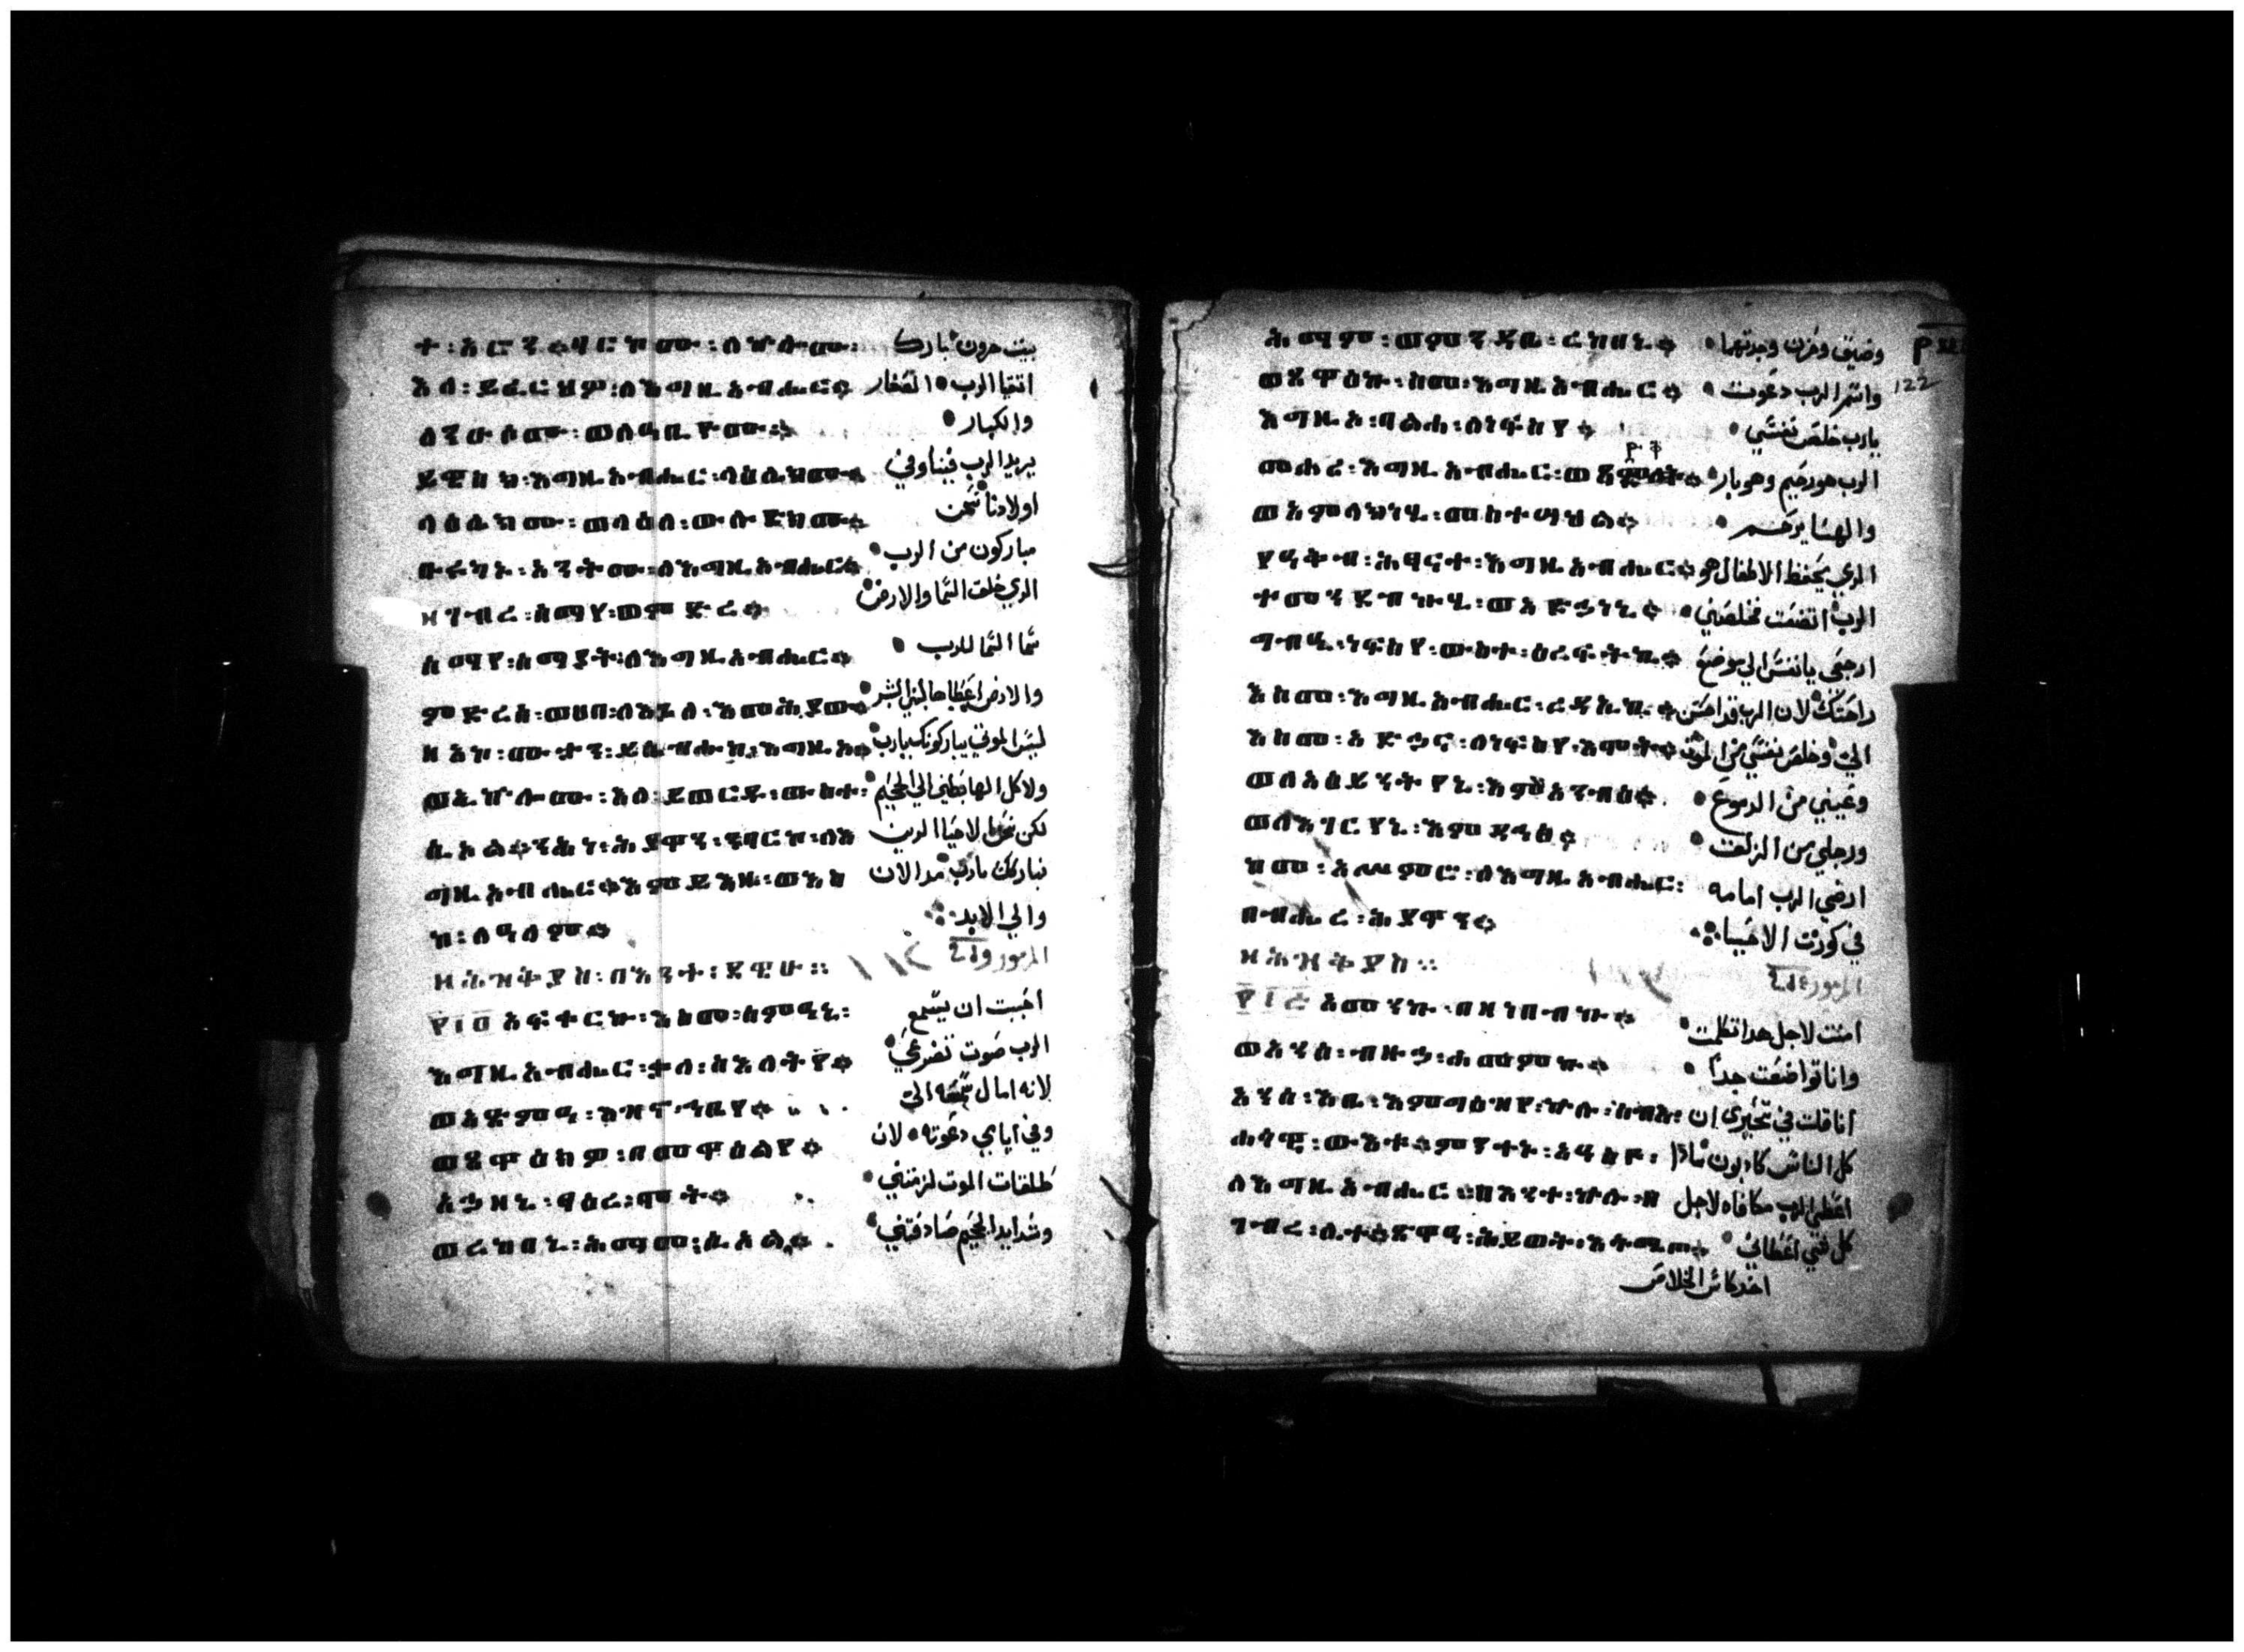 ት፡አሮን፡ባርኮሙ፡ለኵሎሙ፡ بيت هرون بارك
እለ፡ይፈርህዎ፡ለእግዚአብሔር። اتقيا الرب الصغار
ለንኡሶሙ፡ወለዓቢዮሙ። والكبار
ይዌስክ፡እግዚአብሔር፡ላዕሌክሙ። يريد الرب فينا وفي
ላዕሌክሙ፡ወላዕለ፡ውሉድክሙ። اولادنا نحن
ቡሩካን፡አንትሙ፡ለእግዚአብሔር። مباركون من الرب
ዘገብረ፡ሰማየ፡ወምድረ። الدي خلق السما والارض
ሰማየ፡ሰማያት፡ለእግዚአብሔር። سما السما للرب
ምድረሰ፡ወሀበ፡ለእጓለ፡እመሕያው። والارض اعطاها لبني البشر
ዘአኮ፡ሙታን፡ይሴብሑከ፡እግዚኦ። ليس الموتي يباركونك يارب
ወኢኵሎሙ፡እለ፡ይወርዱ፡ውስተ፡ ولا كل الهابطين الي الجحيم
ሲኦል።ንሕነ፡ሕያዋን፡ንባርኮ፡ለእ لكن نحن الاحيا الدين
ግዚአብሔር።እምይእዜ፡ወእስ نباركك يارب مد الان
ከ፡ለዓለም። والي الابد
ዘሕዝቅያስ፡በእንተ፡ደዌሁ። المزمور
፻፲፬ አፍቀርኩ፡እስመ፡ሰምዓኒ፡ احببت ان يسمع
እግዚአብሔር፡ቃለ፡ስእለትየ። الرب صوت تضرعي
ወአጽምዓ፡እዝኖ፡ኀቤየ። لانه امال سمعه الي
ወጸዋዕክዎ፡በመዋዕልየ። وفي ايامي دعوته لان
አኀዘኒ፡ጻዕረ፡ሞት። طلقات الموت لزمتني
ወረከበኒ፡ሕማመ፡ሲኦል። وشدايد الجحيم صادفتني
ሕማም፡ወምንዳቤ፡ረከበኒ። وضيق وحزن وجدتهما
ወጸዋዕኩ፡ስመ፡እግዚአብሔር። واسم الرب دعوت
122
እግዚኦ፡ባልሓ፡ለነፍስየ። يارب خلص نفسي
መሓሪ፡እግዚአብሔር፡ወጻድቅ። الرب هو رحيم وهو بار
ወአምላክነሂ፡መስተሣህል። والهنا يرحم
የዓቅብ፡ሕፃናተ፡እግዚአብሔር። الدي يحفظ الاطفال هو
ተመንደብኩሂ፡ወአድኀነኒ። الرب اتضعت فخلصني
ግብኢ፡ነፍስየ፡ውስተ፡ዕረፍትኪ። ارجعي يا نفسي الي موضع
እስመ፡እግዚአብሔር፡ረድአኪ። راحتك لان الرب قد احسن
እስመ፡አድኀና፡ለነፍስየ፡እሞት። الي وخلص نفسي من الموت
ወለአዕይንትየኒ፡እምአንብዕ። وعيني من الدموع
ወለእግርየኒ፡እምዳኅፅ። ورجلي من الزلق
ከመ፡አሥምሮ፡ለእግዚአብሔር፡ ارضي الرب امامه
በብሔረ፡ሕያዋን። في كورة الاحيا
ዘሕዝቅያስ። المزمور
፻፲፭ አመንኩ፡በዘነበብኩ። امنت لاجل هدا تكلمت
ወአንሰ፡ብዙኀ፡ሐመምኩ። وانا تواضعت جدا
አንሰ፡እቤ፡እምግዕዝየ፡ኵሉ፡ሰብእ፡ انا قلت في تحيري ان
ሐሳዊ፡ውእቱ።ምንተኑ፡አዓስዮ፡ كل الناس كادبون مادا
ለእግዚአብሔር፡በእንተ፡ኵሉ፡ዘ اعطي الرب مكافاه لاجل
ገብረ፡ሊተ።ጽዋዓ፡ሕይወት፡እትሜጦ። كل شي اعطاني
اخد كاس الخلاص